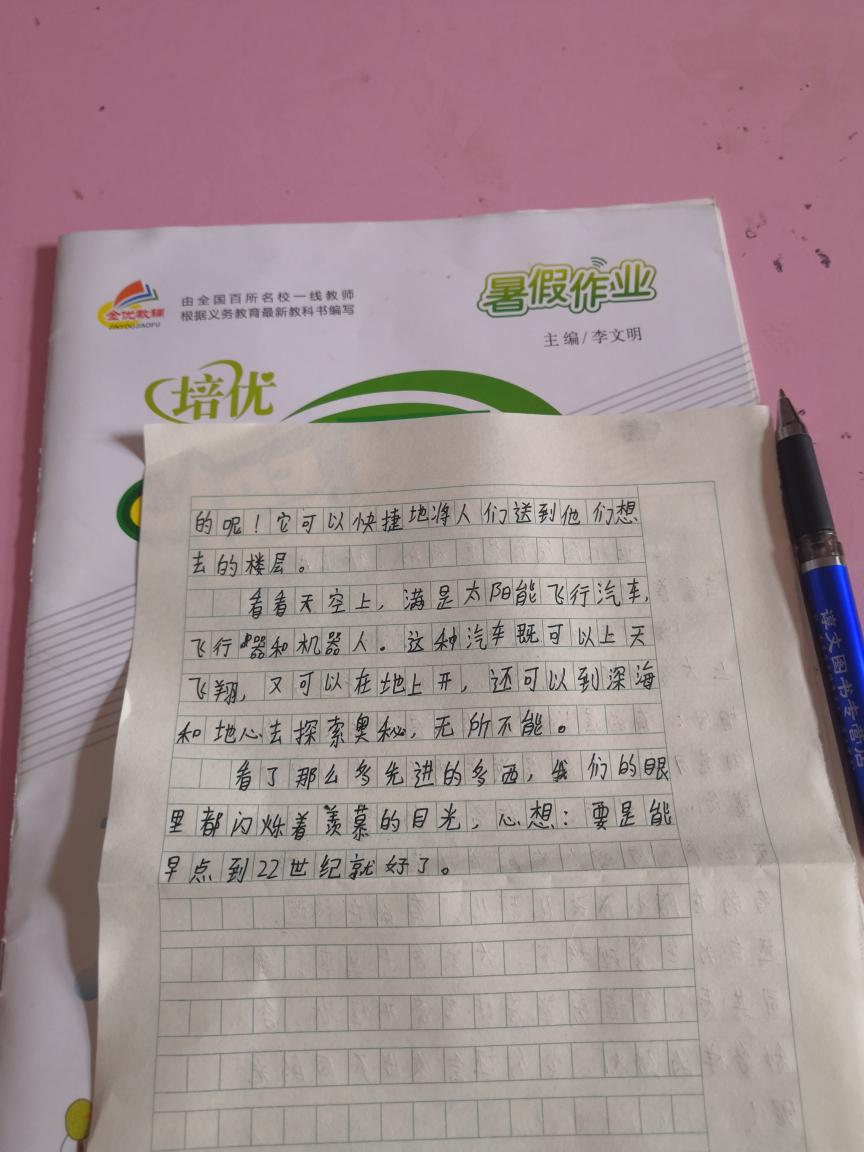 金优教辅
JINYOUJIAOFU
由全国百所名校一线教师
根据义务教育最新教科书编写
暑假作业
主编/李文明
培优
的呢！它可以快捷地将人们送到他们想
去的楼层。
看看天空上，满是太阳能飞行汽车，
飞行器和机器人。这种汽车既可以上天
飞翔，又可以在地上开，还可以到深海
和地心去探索奥秘，无所不能。
看了那么多先进的多西，我们的眼
里都闪烁着羡慕的目光，心想：要是能
早点到22世纪就好了。
谆文图书专营店